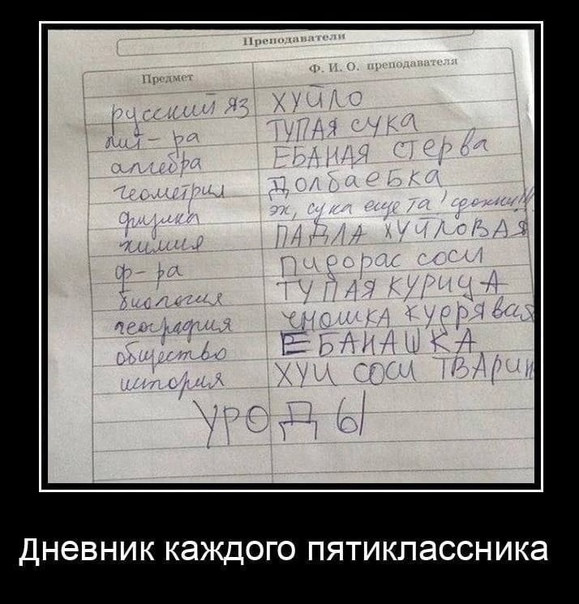 Преподаватели
Предмет Ф. И. О. преподавателя
русский яз ХУЙЛО
лит-ра ТУПАЯ сука
алгебра ЕБАНАЯ стерва
геометрия Долбаебка
физика эх, сука еще та! сдохни!!
химия ПАДЛА ХУЙЛОВАЯ
ф-ра Пидорас соси
биология ТУПАЯ КУРИЦА
география КУДРЯВАЯ
общество ЕБАНАШКА
история ХУЙ соси ТВАРИ
УРОДЫ
Дневник каждого пятиклассника